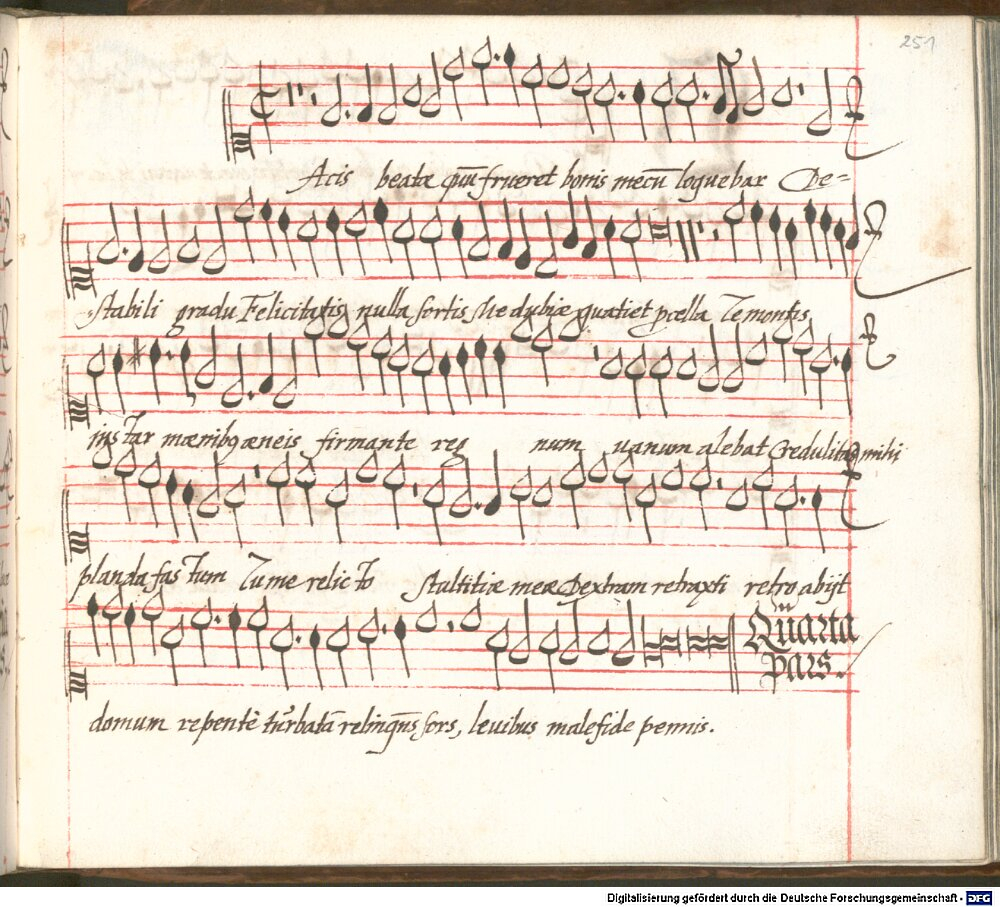 251
Acis beatæ quū frueret bonis mecū loquebar De=
stabili gradu Felicitatis nulla sortis Me dubiæ quatiet pcella Te montis
instar mœnibq æneis firmante regnum uanum alebat Credulitas mihi
planda fastum Tu me relicto stultitiæ meæ Dextram retraxti retro abijt
Quarta
pars.
domum repentè turbatā relinqns sors, leuibus malefide pennis.
Digitalisierung gefördert durch die Deutsche Forschungsgemeinschaft - DFG